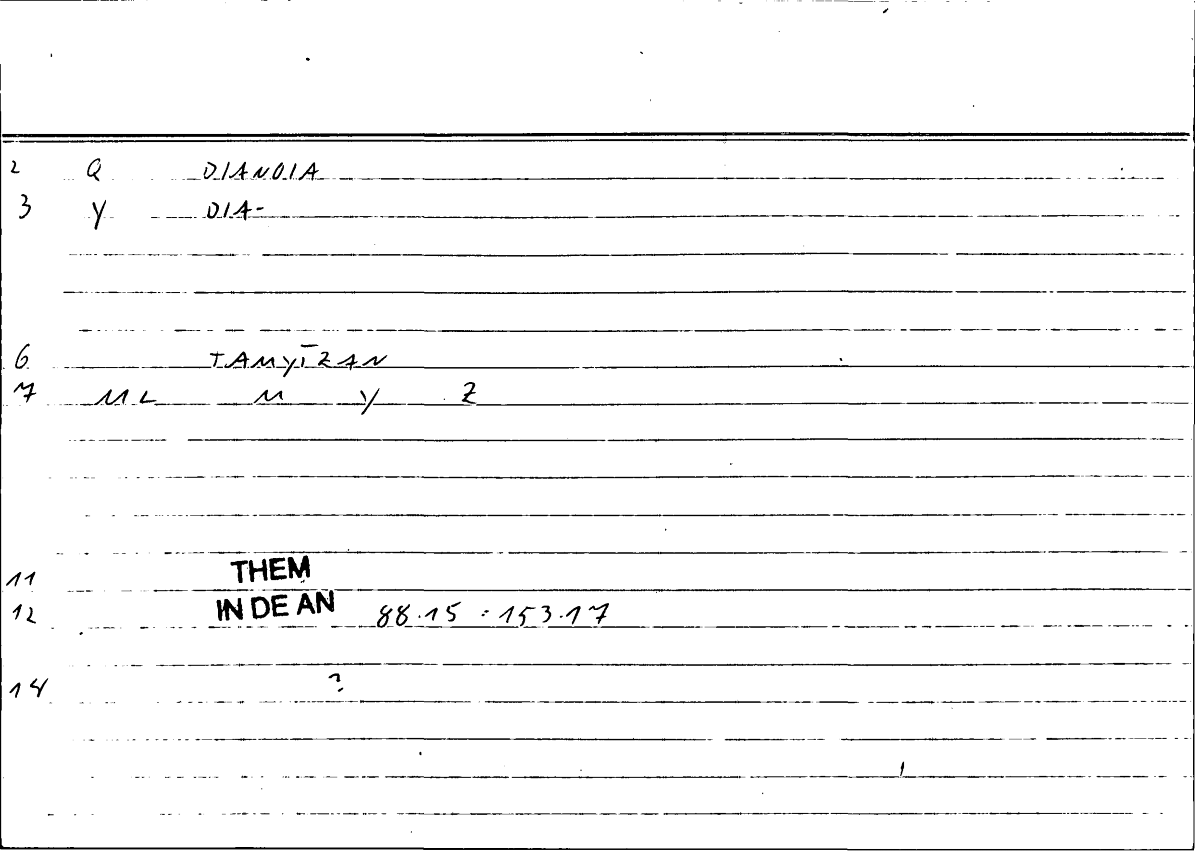 2 Q DIANOIA
3 Y DIA-
6 TAMYĪZAN
7 ML M Y Z
11 THEM
12 IN DE AN 88.15 : 153.17
14 ?